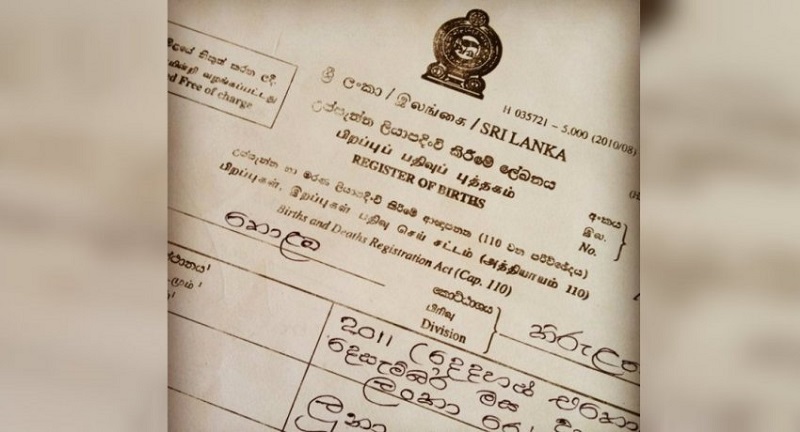 H 035721 – 5,000 (2010/08)
ශ්‍රී ලංකා / இலங்கை / SRI LANKA
d Free of charge
උප්පැන්න ලියාපදිංචි කිරීමේ ලේඛනය
பிறப்புப் பதிவுப் புத்தகம்
REGISTER OF BIRTHS
උප්පැන්න හා මරණ ලියාපදිංචි කිරීමේ ආඥාපනත (110 වන පරිච්ඡේදය)
பிறப்புகள், இறப்புகள் பதிவு செய் சட்டம் (அத்தியாயம் 110)
Births and Deaths Registration Act (Cap. 110)
අංකය
இல.
No.
කොළඹ
කොට්ඨාශය
பிரிவு
Division
2011 (දෙදහස්
දෙසැම්බර් මස
ලංකා